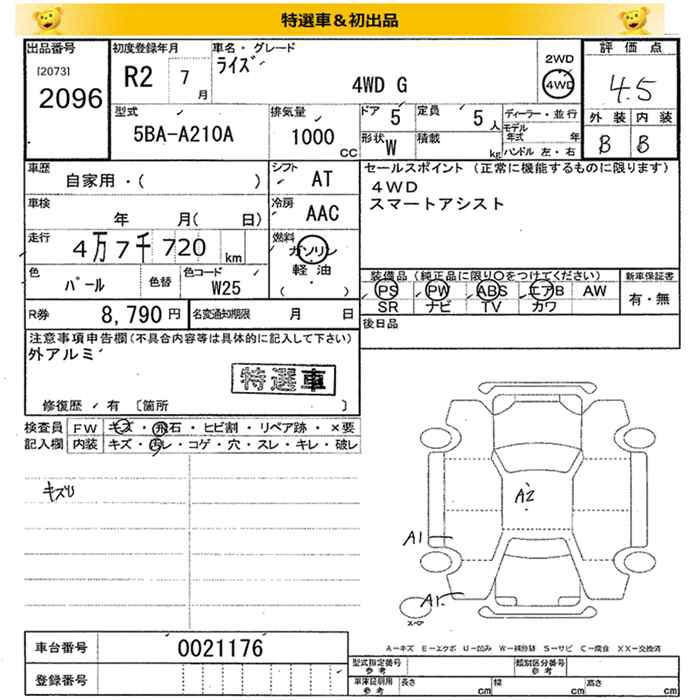 特選車＆初出品
出品番号 初度登録年月 車名・グレード 評価点
[2073] 2096
R2 7月 ライズ 4WD G 2WD 4WD 4.5
型式 5BA-A210A 排気量 1000 CC ドア 5 定員 5人 ディーラー・並行 外装 内装
形状 W 積載 kg モデル年式 年 ハンドル 左・右 B B
車歴 自家用・( ) シフト AT セールスポイント (正常に機能するものに限ります)
4WD
スマートアシスト
車検 年 月( 日) 冷房 AAC
走行 4万7千720 km 燃料 ガソリン 軽油 ( ・ )
色 パール 色替 色コード W25 装備品 (純正品に限り〇をつけてください) 新車保証書
PS PW ABS エアB AW 有・無
SR ナビ TV カワ
R券 8,790円 名変通知期限 月 日 後日品
注意事項申告欄(不具合内容等は具体的に記入して下さい)
外アルミ
特選車
修復歴 有 [箇所 ]
検査員 FW キズ・飛石・ヒビ割・リペア跡・×要
記入欄 内装 キズ・汚レ・コゲ・穴・スレ・キレ・破レ
A2
A1
A1
A－キズ E－エクボ U－凹み W－補修跡 S－サビ C－腐食 XX－交換済
車台番号 0021176 型式指定番号 参考 類別区分番号 参考
登録番号 車庫証明用 参考 長さ cm 幅 cm 高さ cm